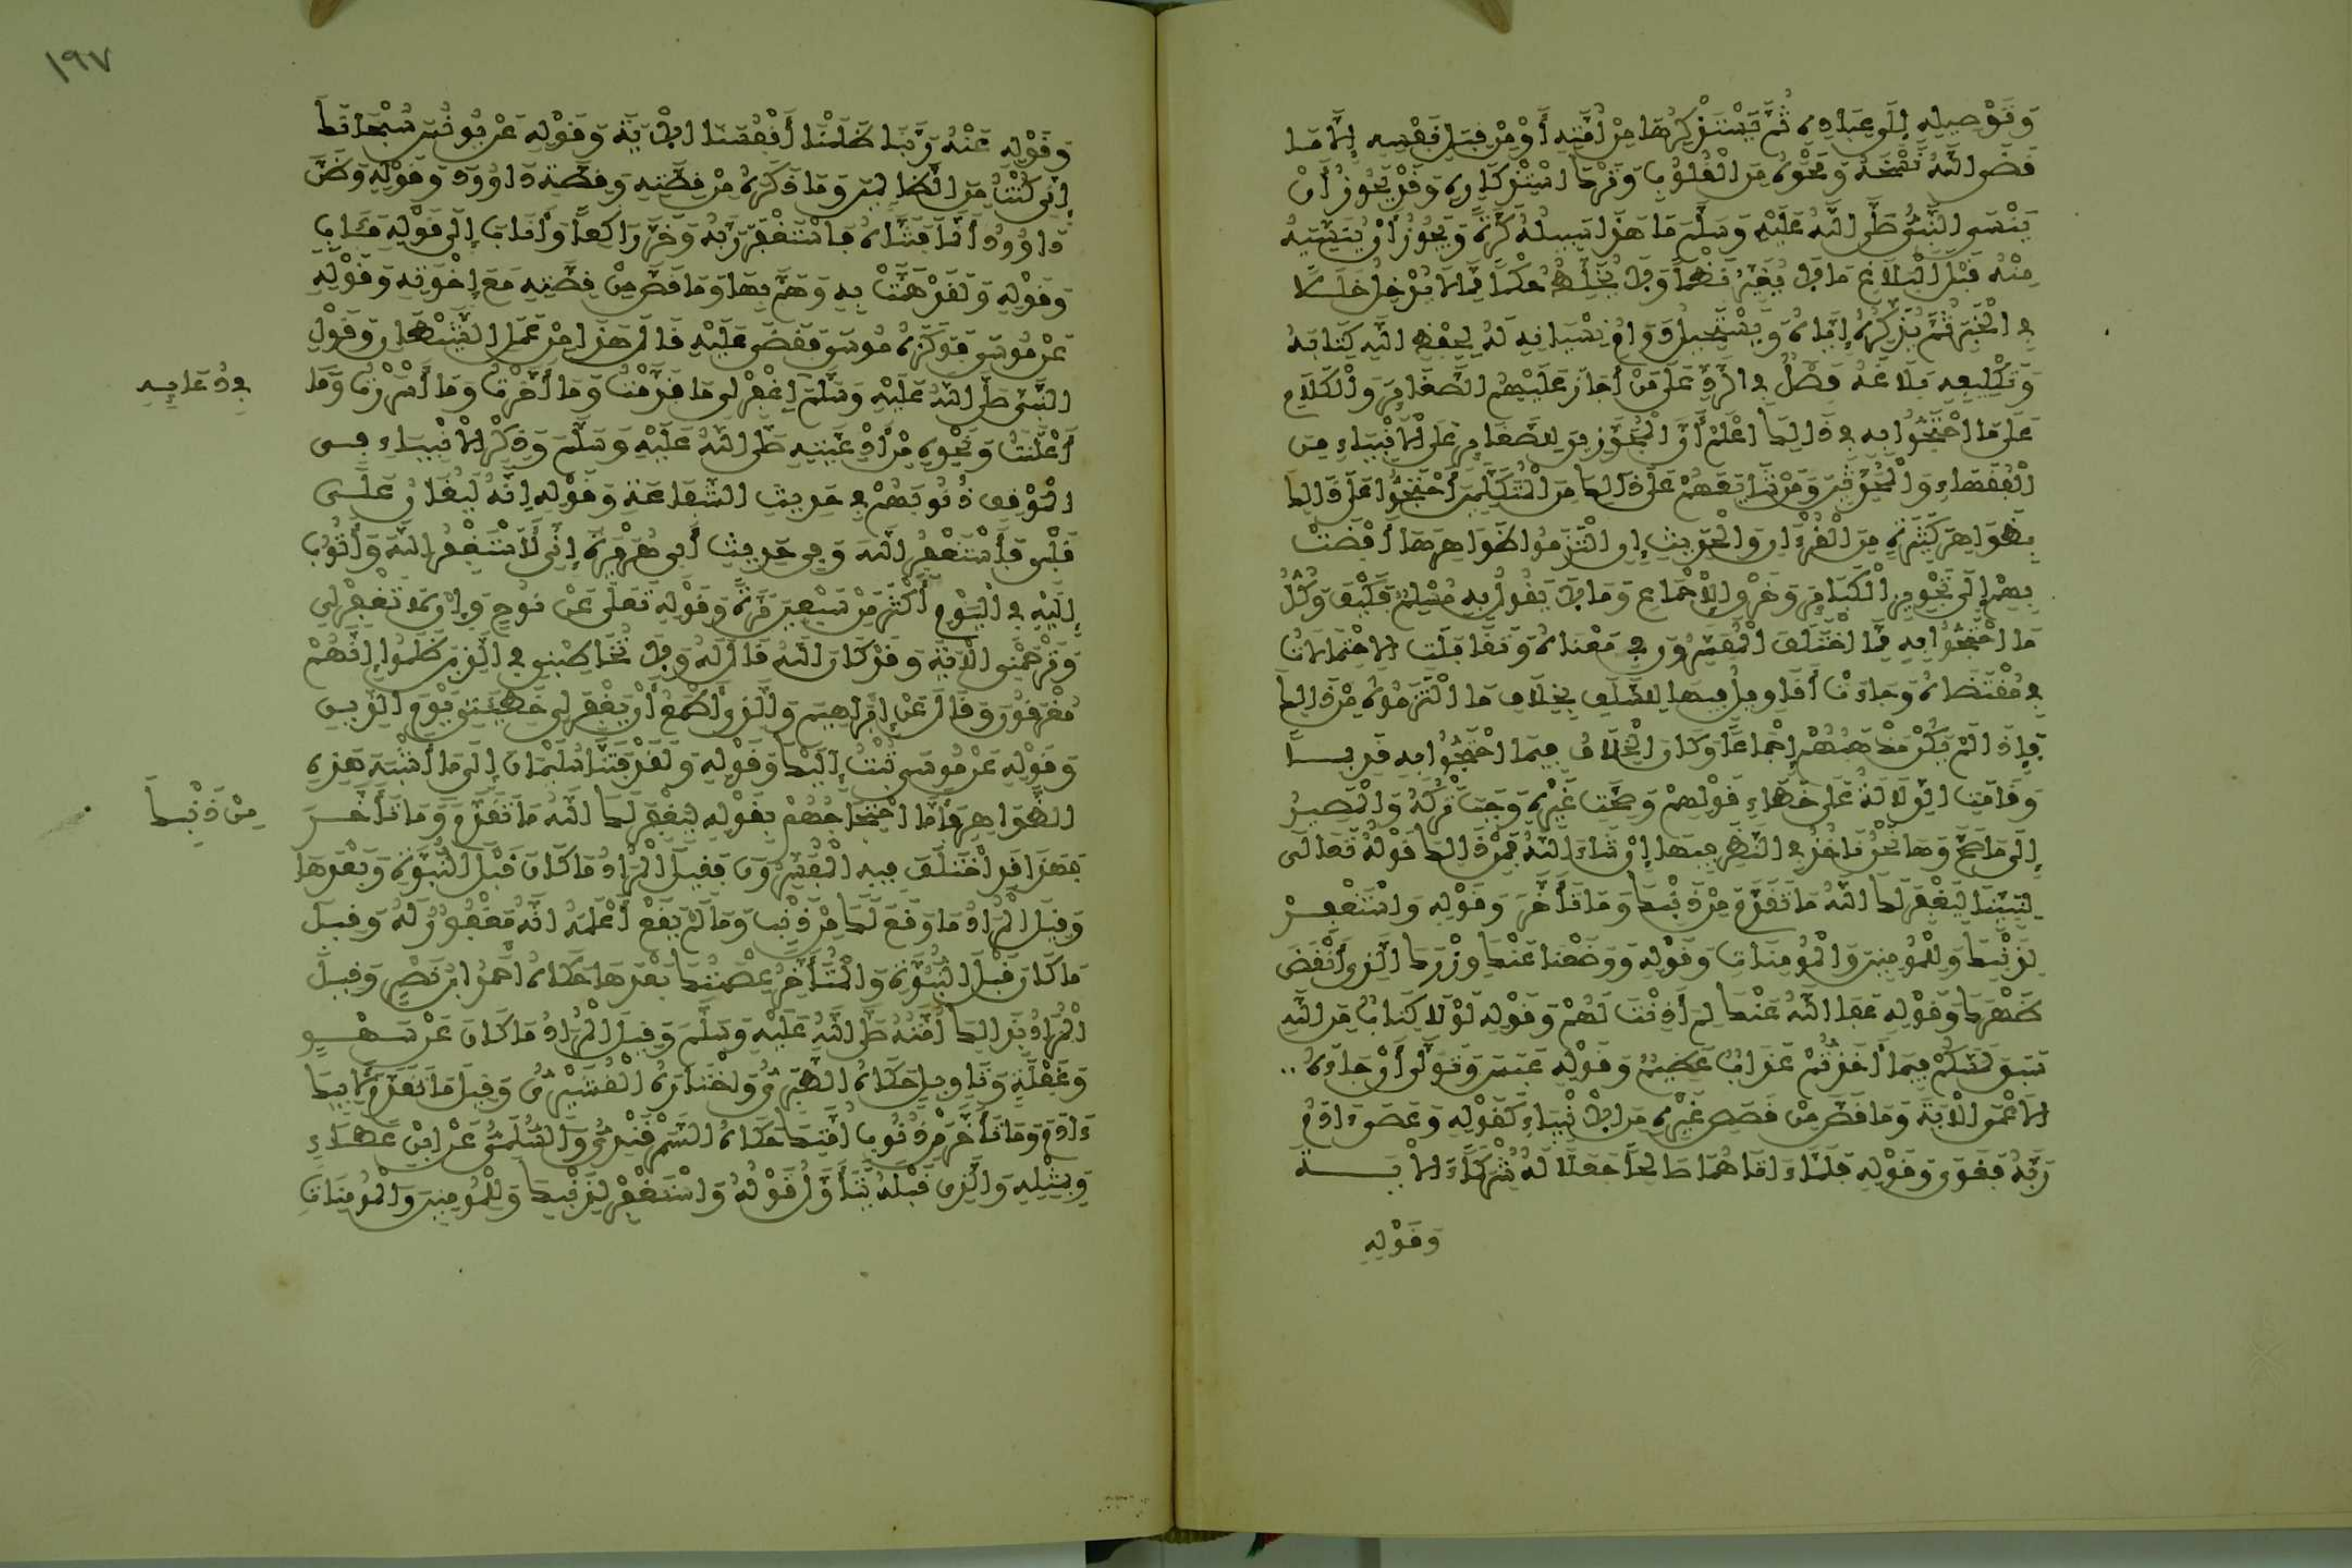 وَتَوْصِيلِهِ إِلَى عِبَادِهِ ثُمَّ يَسْتَذْكِرُهَا مِنْ أُمَّتِهِ أَوْ مِنْ قِبَلِ نَفْسِهِ إِلَّا مَا
قَضَى اللَّهُ نَسْخَهُ وَمَحْوَهُ مِنَ الْقُلُوبِ وَتَرْكَ اسْتِذْكَارِهِ وَقَدْ يَجُوزُ أَنْ
يَنْسَى النَّبِيُّ صَلَّى اللَّهُ عَلَيْهِ وَسَلَّمَ مَا هَذَا سَبِيلُهُ كَرَّةً وَيَجُوزُ أَنْ يُنَسِّيَهُ
مِنْهُ قَبْلَ الْبَلَاغِ مَا لَا يُغَيِّرُ نَظْمًا وَلَا يُخَلِّطُ حُكْمًا مِمَّا لَا يُدْخِلُ خَلَلًا
فِي الْخَبَرِ ثُمَّ يُذَكِّرُهُ إِيَّاهُ وَيَسْتَحِيلُ دَوَامُ نِسْيَانِهِ لَهُ لِحِفْظِ اللَّهِ كِتَابَهُ
وَتَكْلِيفِهِ بَلَاغَهُ فَصْلٌ فِي الرَّدِّ عَلَى مَنْ أَجَازَ عَلَيْهِمُ الصَّغَائِرَ وَالْكَلَامِ
عَلَى مَا احْتَجُّوا بِهِ فِي ذَلِكَ اعْلَمْ أَنَّ الْمُجَوِّزِينَ لِلصَّغَائِرِ عَلَى الْأَنْبِيَاءِ مِنَ
الْفُقَهَاءِ وَالْمُحَدِّثِينَ وَمَنْ شَايَعَهُمْ عَلَى ذَلِكَ مِنَ الْمُتَكَلِّمِينَ احْتَجُّوا عَلَى ذَلِكَ
بِظَوَاهِرَ كَثِيرَةٍ مِنَ الْقُرْآنِ وَالْحَدِيثِ إِنِ الْتَزَمُوا ظَوَاهِرَهَا أَفْضَتْ
بِهِمْ إِلَى تَجْوِيزِ الْكَبَائِرِ وَخَرْقِ الْإِجْمَاعِ وَمَا لَا يَقُولُ بِهِ مُسْلِمٌ فَكَيْفَ وَكُلُّ
مَا احْتَجُّوا بِهِ مِمَّا اخْتَلَفَ الْمُفَسِّرُونَ فِي مَعْنَاهُ وَتَقَابَلَتِ الِاحْتِمَالَاتُ
فِي مُقْتَضَاهُ وَجَاءَتْ أَقَاوِيلُ فِيهَا لِلسَّلَفِ بِخِلَافِ مَا الْتَزَمُوهُ مِنْ ذَلِكَ
فَإِذَا لَمْ يَكُنْ مَذْهَبُهُمْ إِجْمَاعًا وَكَانَ الْخِلَافُ فِيمَا احْتَجُّوا بِهِ قَدِيمًا
وَقَامَتِ الدَّلَالَةُ عَلَى خَطَإِ قَوْلِهِمْ وَصِحَّةِ غَيْرِهِ وَجَبَ تَرْكُهُ وَالْمَصِيرُ
إِلَى مَا صَحَّ وَهَا نَحْنُ نَأْخُذُ فِي النَّظَرِ فِيهَا إِنْ شَاءَ اللَّهُ فَمِنْ ذَلِكَ قَوْلُهُ تَعَالَى
لِنَبِيِّنَا لِيَغْفِرَ لَكَ اللَّهُ مَا تَقَدَّمَ مِنْ ذَنْبِكَ وَمَا تَأَخَّرَ وَقَوْلِهِ وَاسْتَغْفِرْ
لِذَنْبِكَ وَلِلْمُومِنِينَ وَالْمُومِنَاتِ وَقَوْلِهِ وَوَضَعْنَا عَنْكَ وِزْرَكَ الَّذِي أَنْقَضَ
ظَهْرَكَ وَقَوْلِهِ عَفَا اللَّهُ عَنْكَ لِمَ أَذِنْتَ لَهُمْ وَقَوْلِهِ لَوْلَا كِتَابٌ مِنَ اللَّهِ
سَبَقَ لَمَسَّكُمْ فِيمَا أَخَذْتُمْ عَذَابٌ عَظِيمٌ وَقَوْلِهِ عَبَسَ وَتَوَلَّى أَنْ جَاءَهُ
الْأَعْمَى الْآيَةَ وَمَا قَصَّ مِنْ قَصَصِ غَيْرِهِ مِنَ الْأَنْبِيَاءِ كَقَوْلِهِ وَعَصَى ءَادَمُ
رَبَّهُ فَغَوَى وَقَوْلِهِ فَلَمَّا ءَاتَاهُمَا صَالِحًا جَعَلَا لَهُ شُرَكَاءَ الْآيَةَ
وَقَوْلِهِ
١٩٧
وَقَوْلِهِ عَنْهُ رَبَّنَا ظَلَمْنَا أَنْفُسَنَا الْآيَةَ وَقَوْلِهِ عَنْ يُونُسَ سُبْحَانَكَ
إِنِّي كُنْتُ مِنَ الظَّالِمِينَ وَمَا ذَكَرَهُ مِنْ قِصَّتِهِ وَقِصَّةِ دَاوُودَ وَقَوْلِهِ وَظَنَّ
دَاوُودُ أَنَّمَا فَتَنَّاهُ فَاسْتَغْفَرَ رَبَّهُ وَخَرَّ رَاكِعًا وَأَنَابَ إِلَى قَوْلِهِ مَئَابٍ
وَقَوْلِهِ وَلَقَدْ هَمَّتْ بِهِ وَهَمَّ بِهَا وَمَا قَصَّ مِنْ قِصَّتِهِ مَعَ إِخْوَتِهِ وَقَوْلِهِ
عَنْ مُوسَى فَوَكَزَهُ مُوسَى فَقَضَى عَلَيْهِ قَالَ هَذَا مِنْ عَمَلِ الشَّيْطَانِ وَقَوْلِ
النَّبِيِّ صَلَّى اللَّهُ عَلَيْهِ وَسَلَّمَ اغْفِرْ لِي مَا قَدَّمْتُ وَمَا أَخَّرْتُ وَمَا أَسْرَرْتُ وَمَا
فِي دُعَايِهِ
أَعْلَنْتُ وَنَحْوِهِ مِنْ أَدْعِيَتِهِ صَلَّى اللَّهُ عَلَيْهِ وَسَلَّمَ وَذِكْرِ الْأَنْبِيَاءِ فِي
الْمَوْقِفِ ذُنُوبَهُمْ فِي حَدِيثِ الشَّفَاعَةِ وَقَوْلِهِ إِنَّهُ لَيُغَانُ عَلَى
قَلْبِي فَأَسْتَغْفِرُ اللَّهَ وَفِي حَدِيثِ أَبِي هُرَيْرَةَ إِنِّي لَأَسْتَغْفِرُ اللَّهَ وَأَتُوبُ
إِلَيْهِ فِي الْيَوْمِ أَكْثَرَ مِنْ سَبْعِينَ مَرَّةً وَقَوْلِهِ تَعَالَى عَنْ نُوحٍ وَإِلَّا تَغْفِرْ لِي
وَتَرْحَمْنِي الْآيَةَ وَقَدْ كَانَ اللَّهُ قَالَ لَهُ وَلَا تُخَاطِبْنِي فِي الَّذِينَ ظَلَمُوا إِنَّهُمْ
مُغْرَقُونَ وَقَالَ عَنْ إِبْرَاهِيمَ وَالَّذِي أَطْمَعُ أَنْ يَغْفِرَ لِي خَطِيئَتِي يَوْمَ الدِّينِ
وَقَوْلِهِ عَنْ مُوسَى تُبْتُ إِلَيْكَ وَقَوْلِهِ وَلَقَدْ فَتَنَّا سُلَيْمَانَ إِلَى مَا أَشْبَهَ هَذِهِ
الظَّوَاهِرَ فَأَمَّا احْتِجَاجُهُمْ بِقَوْلِهِ لِيَغْفِرَ لَكَ اللَّهُ مَا تَقَدَّمَ وَمَا تَأَخَّرَ
مِنْ ذَنْبِكَ
فَهَذَا قَدِ اخْتَلَفَ فِيهِ الْمُفَسِّرُونَ فَقِيلَ الْمُرَادُ مَا كَانَ قَبْلَ النُّبُوَّةِ وَبَعْدَهَا
وَقِيلَ الْمُرَادُ مَا وَقَعَ لَكَ مِنْ ذَنْبٍ وَمَا لَمْ يَقَعْ أَعْلَمَهُ أَنَّهُ مَغْفُورٌ لَهُ وَقِيلَ
مَا كَانَ قَبْلَ النُّبُوَّةِ وَالْمُتَأَخِّرُ عِصْمَتُكَ بَعْدَهَا حَكَاهُ أَحْمَدُ ابْنُ نَصْرٍ وَقِيلَ
الْمُرَادُ بِذَلِكَ أُمَّتُهُ صَلَّى اللَّهُ عَلَيْهِ وَسَلَّمَ وَقِيلَ الْمُرَادُ مَا كَانَ عَنْ سَهْوٍ
وَغَفْلَةٍ وَتَأْوِيلٍ حَكَاهُ الطَّبَرِيُّ وَاخْتَارَهُ الْقُشَيْرِيُّ وَقِيلَ مَا تَقَدَّمَ لِأَبِيكَ
ءَادَمَ وَمَا تَأَخَّرَ مِنْ ذُنُوبِ أُمَّتِكَ حَكَاهُ السَّمَرْقَنْدِيُّ وَالسُّلَمِيُّ عَنِ ابْنِ عَطَاءٍ
وَبِمِثْلِهِ وَالَّذِي قَبْلَهُ يُتَأَوَّلُ قَوْلُهُ وَاسْتَغْفِرْ لِذَنْبِكَ وَلِلْمُومِنِينَ وَالْمُومِنَاتِ